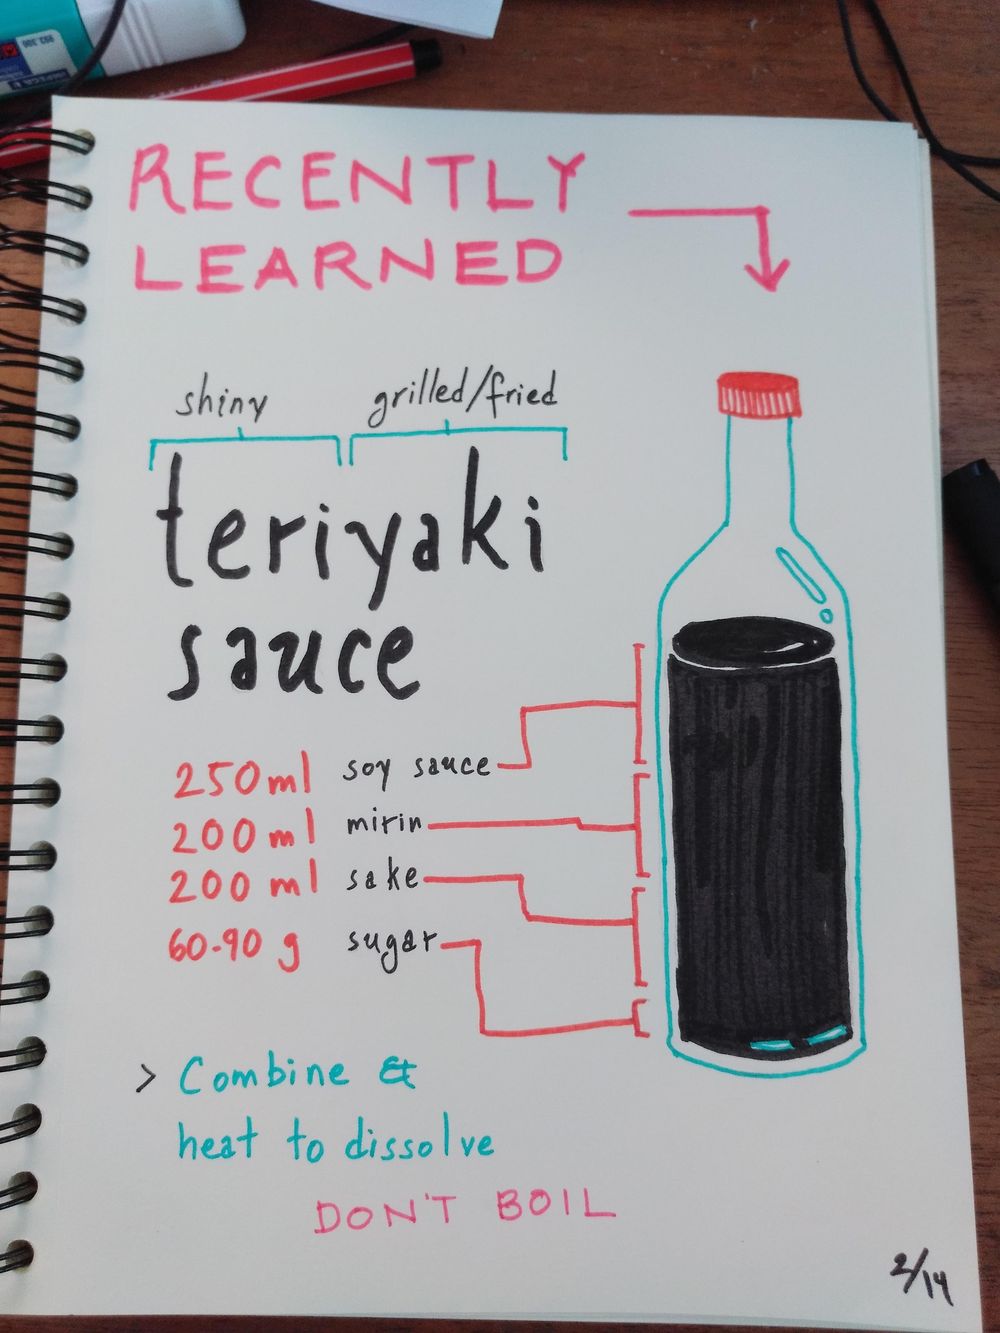 RECENTLY
LEARNED
shiny grilled/fried
teriyaki
sauce
250ml soy sauce
200ml mirin
200 ml sake
60-90 g sugar
> Combine &
heat to dissolve
DON'T BOIL
2/14